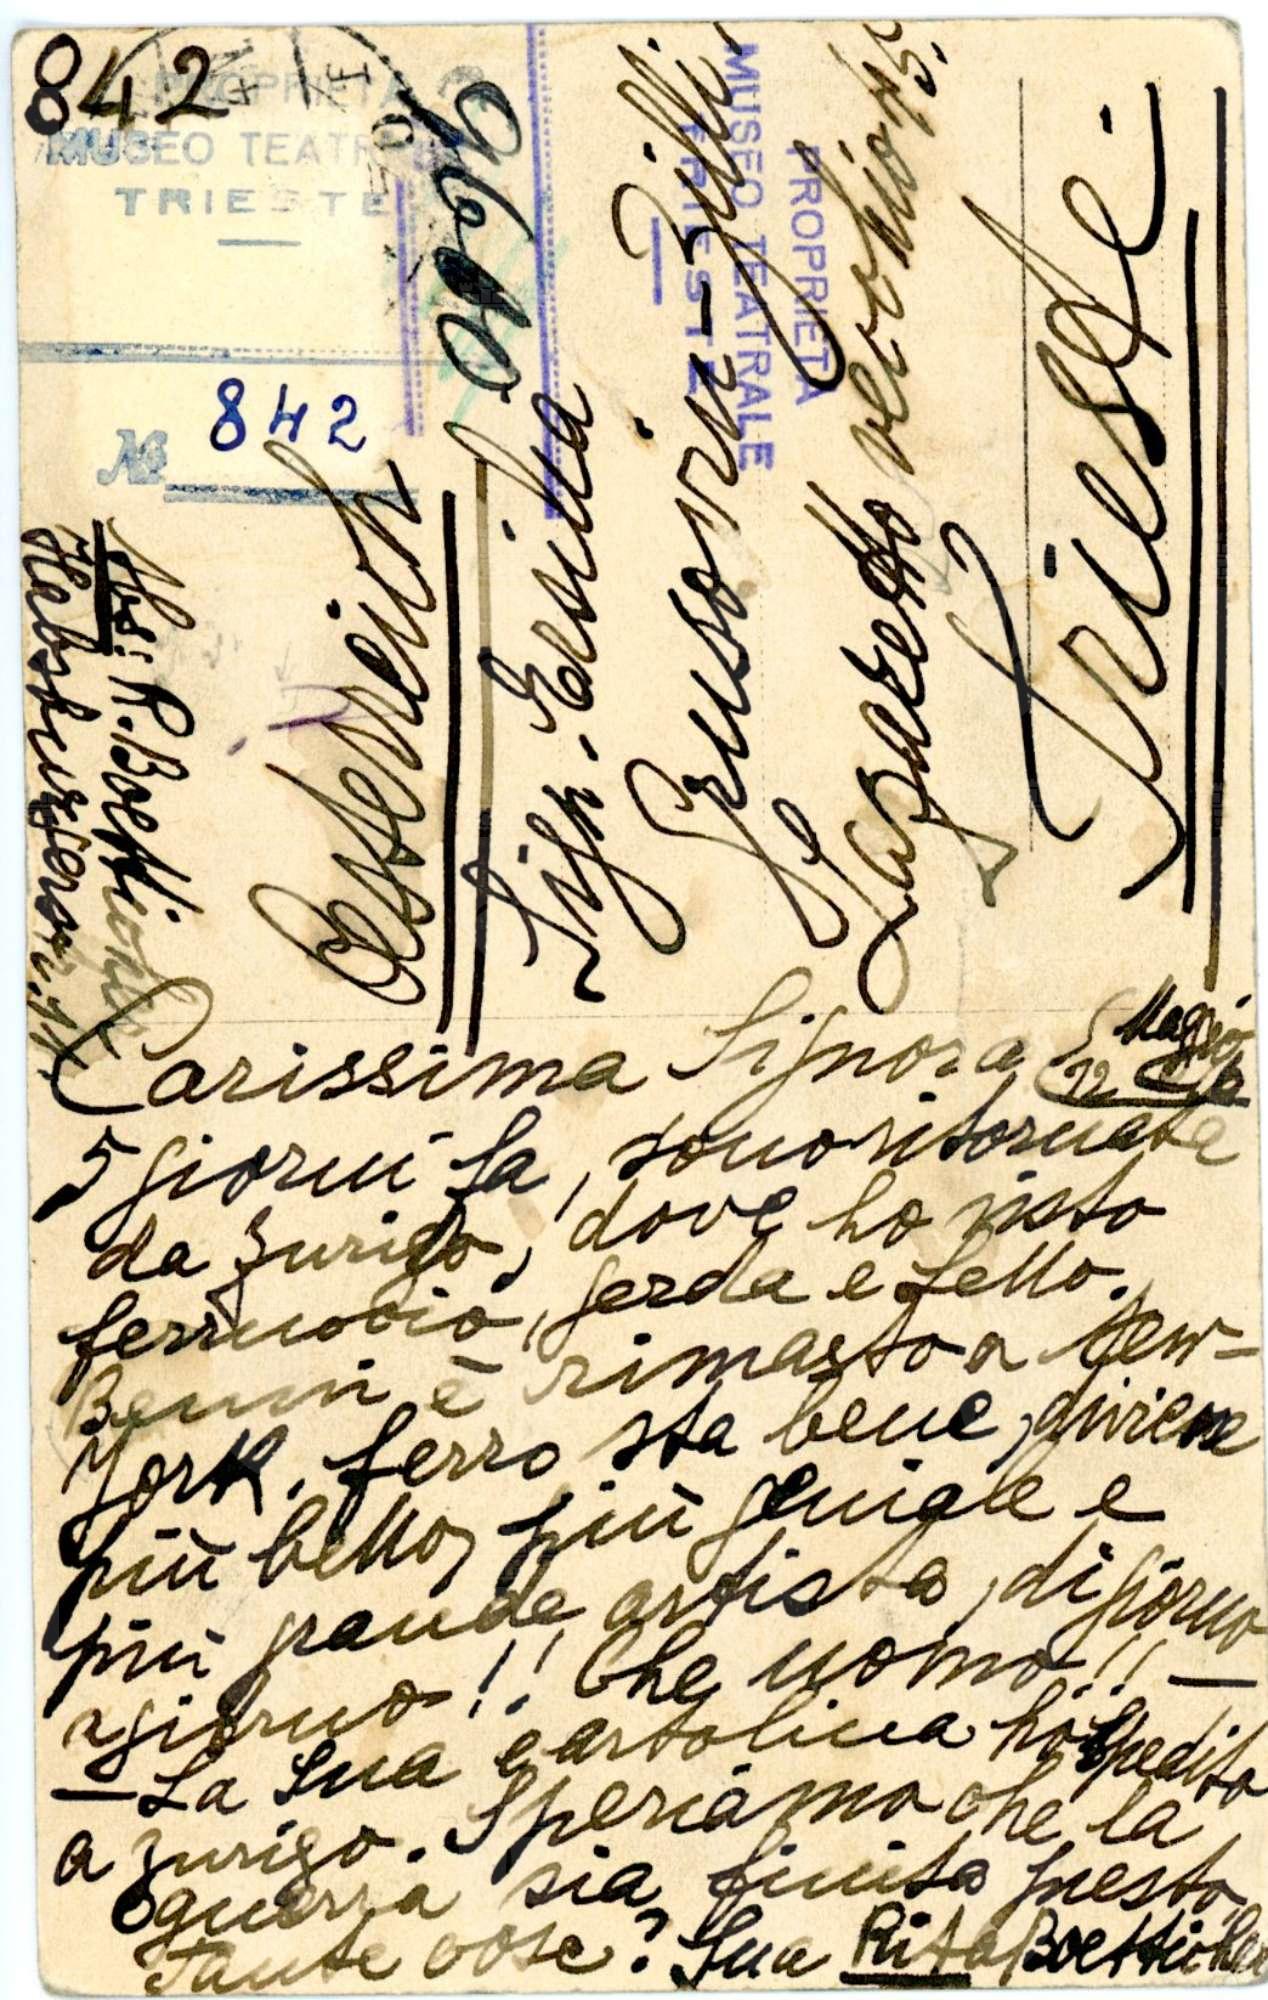 842
PROPRIETÀ
MUSEO TEATRALE
TRIESTE
№ 842
9600
PROPRIETÀ
MUSEO TEATRALE
TRIESTE
Abs: R. Boetticher
Habsburgerstr. 11
Oesterreich
Sign. Ersilia
Grusovin-Zilli
Lazzaretto vecchio
Trieste.
Carissima Signora
Maggio
5 giorni fa, sono ritornata
da Zurigo, dove ho visto
ferruccio, gerda e Lello.
Benni è rimasto a New-
York. ferro sta bene, diviene
più bello, più geniale e
più grande artista, di giorno
a giorno!! Che uomo!! —
— La Sua cartolina ho spedita
a Zurigo. Speriamo che la
guerra sia finita presto,
Tante cose? Sua Rita Boetticher